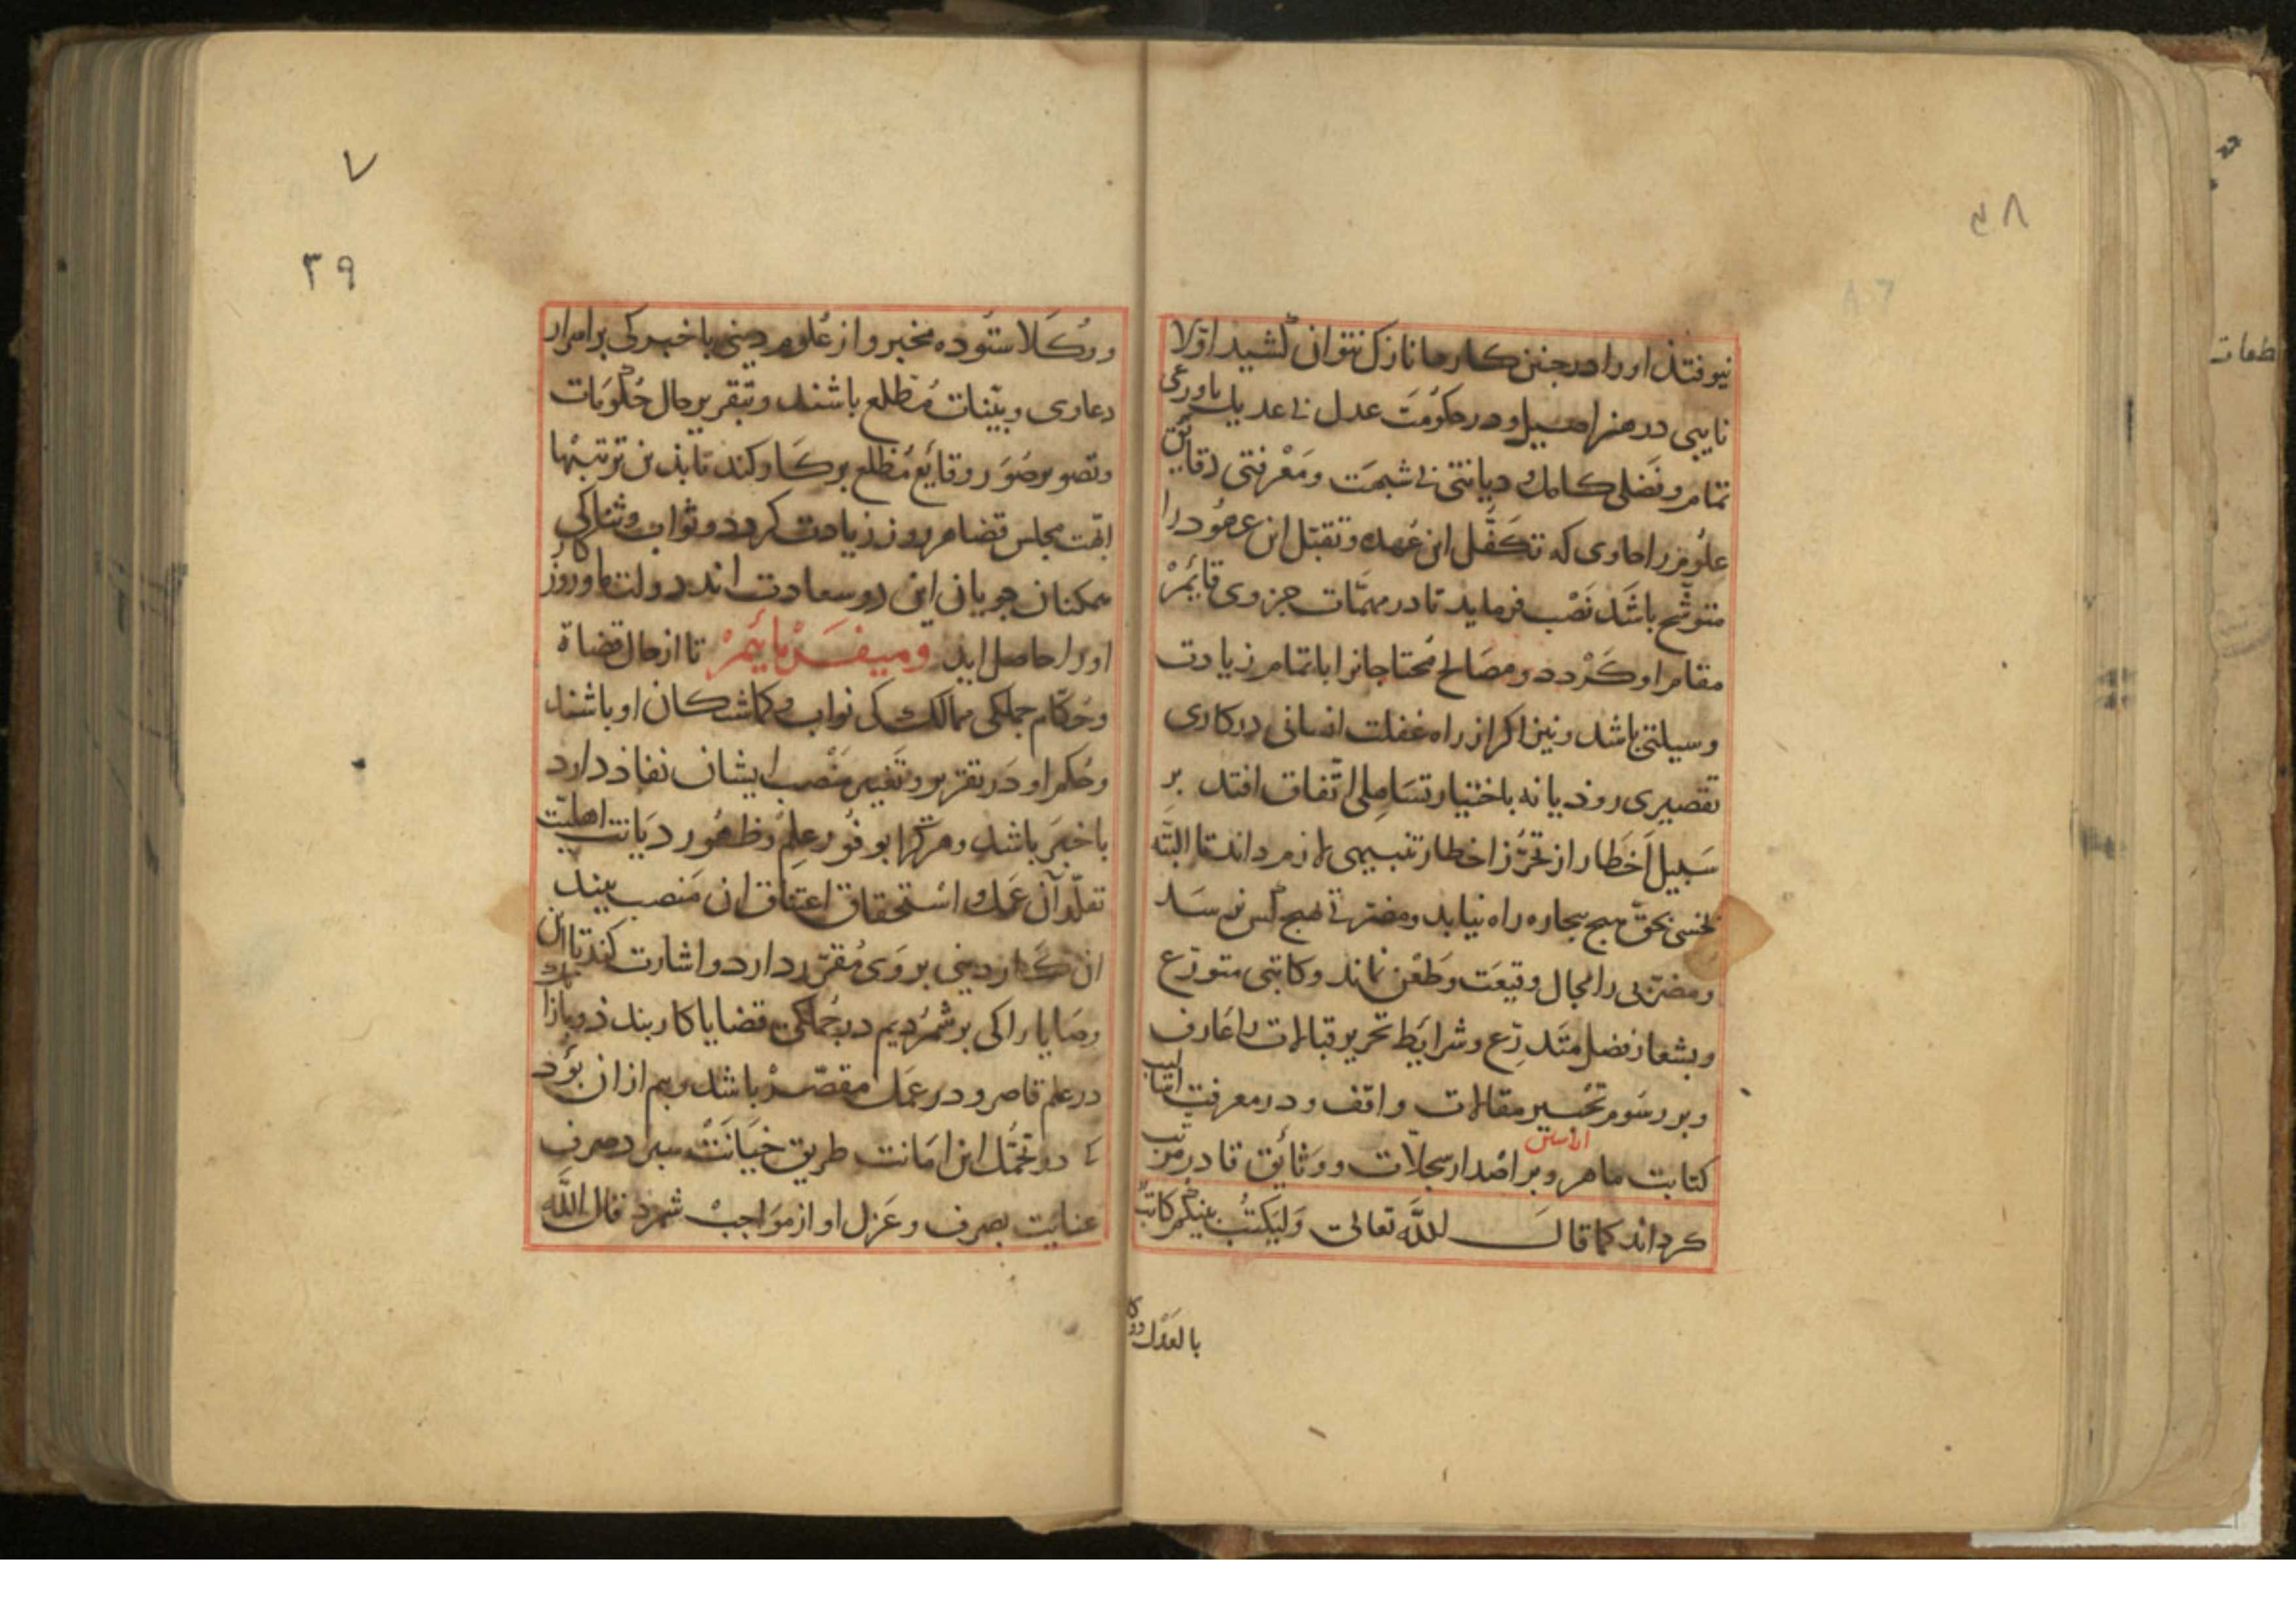 ۳۸
نیوفتذ اورا در جنین کارها نازک نتوان کشید اولا
نایبی در هنر اصیل و در حکومت عدل بی عدیل باورعی
تمام و فضلی کامل و دیانتی بی شبهت و معرفتی دقایق
علوم را حاوی که تکفل این عهده و تقبل این عهود را
متوشح باشد نصب فرماید تا در مهمات جزوی قایم
مقام او کردد و مصالح محتاجانرا باتمام زیادت
وسیلتی باشد و نیز اکر از راه غفلت انسانی در کاری
تقصیری روذ یا نه باختیار تساهلی اتفاق افتد بر
سبیل اخطار از تحرز اخطار تنبیهی لازم داند تا البته
بخسی بحق هیج بیجاره راه نیابد و مضرتی هیج کس نرسد
و مضربی را مجال وقیعت و طعن نماند و کاتبی متورع
و بشعار فضل متدرع و شرایط تحریر قبالات را عارف
و بر رسوم تحسیر مقالات واقف و در معرفت اسالیب
کتابت ماهر و بر اصدار سجلات و وثائق قادر مرتب
کرداند کما قال الله تعالی ولیکتب بینکم کاتب
بالعدل
۷
۳۹
و وکلا ستوده مخبر و از علوم دینی باخبر کی بر اسرار
دعاوی و بینات مطلع باشند و بتقریر حال حکومات
و تصویر صور وقایع مطلع برکمارد کند تا بذین ترتیبها
ابهت مجلس قضا هر روز زیادت کردد و ثواب و ثنا کی
همکنان جویان این دو سعادت اند در دولت ما و روز کار
اورا حاصل اید ومیفرمائیم تا از حال قضاة
و حکام جملکی ممالک کی نواب و کماشتکان او باشند
و حکم او در تقریر و تغییر منصب ایشان نفاذ دارد
باخبر باشد و هر کرا بوفور علم و ظهور دیانت اهلیت
تقلد آن عمل و استحقاق اعتناق ان منصب بیند
ان کار دینی بر وی مقرر دارد و اشارت کند تا این
وصایا را کی بر شمردیم در جملکی قضایا کار بندذ و باز انک
در علم قاصر و در عمل مقصر باشد و بیم از ان بود
کی در تحمل این امانت طریق خیانت سپرد صرف
عنایت بصرف و عزل او از مواجب شمرد قال الله